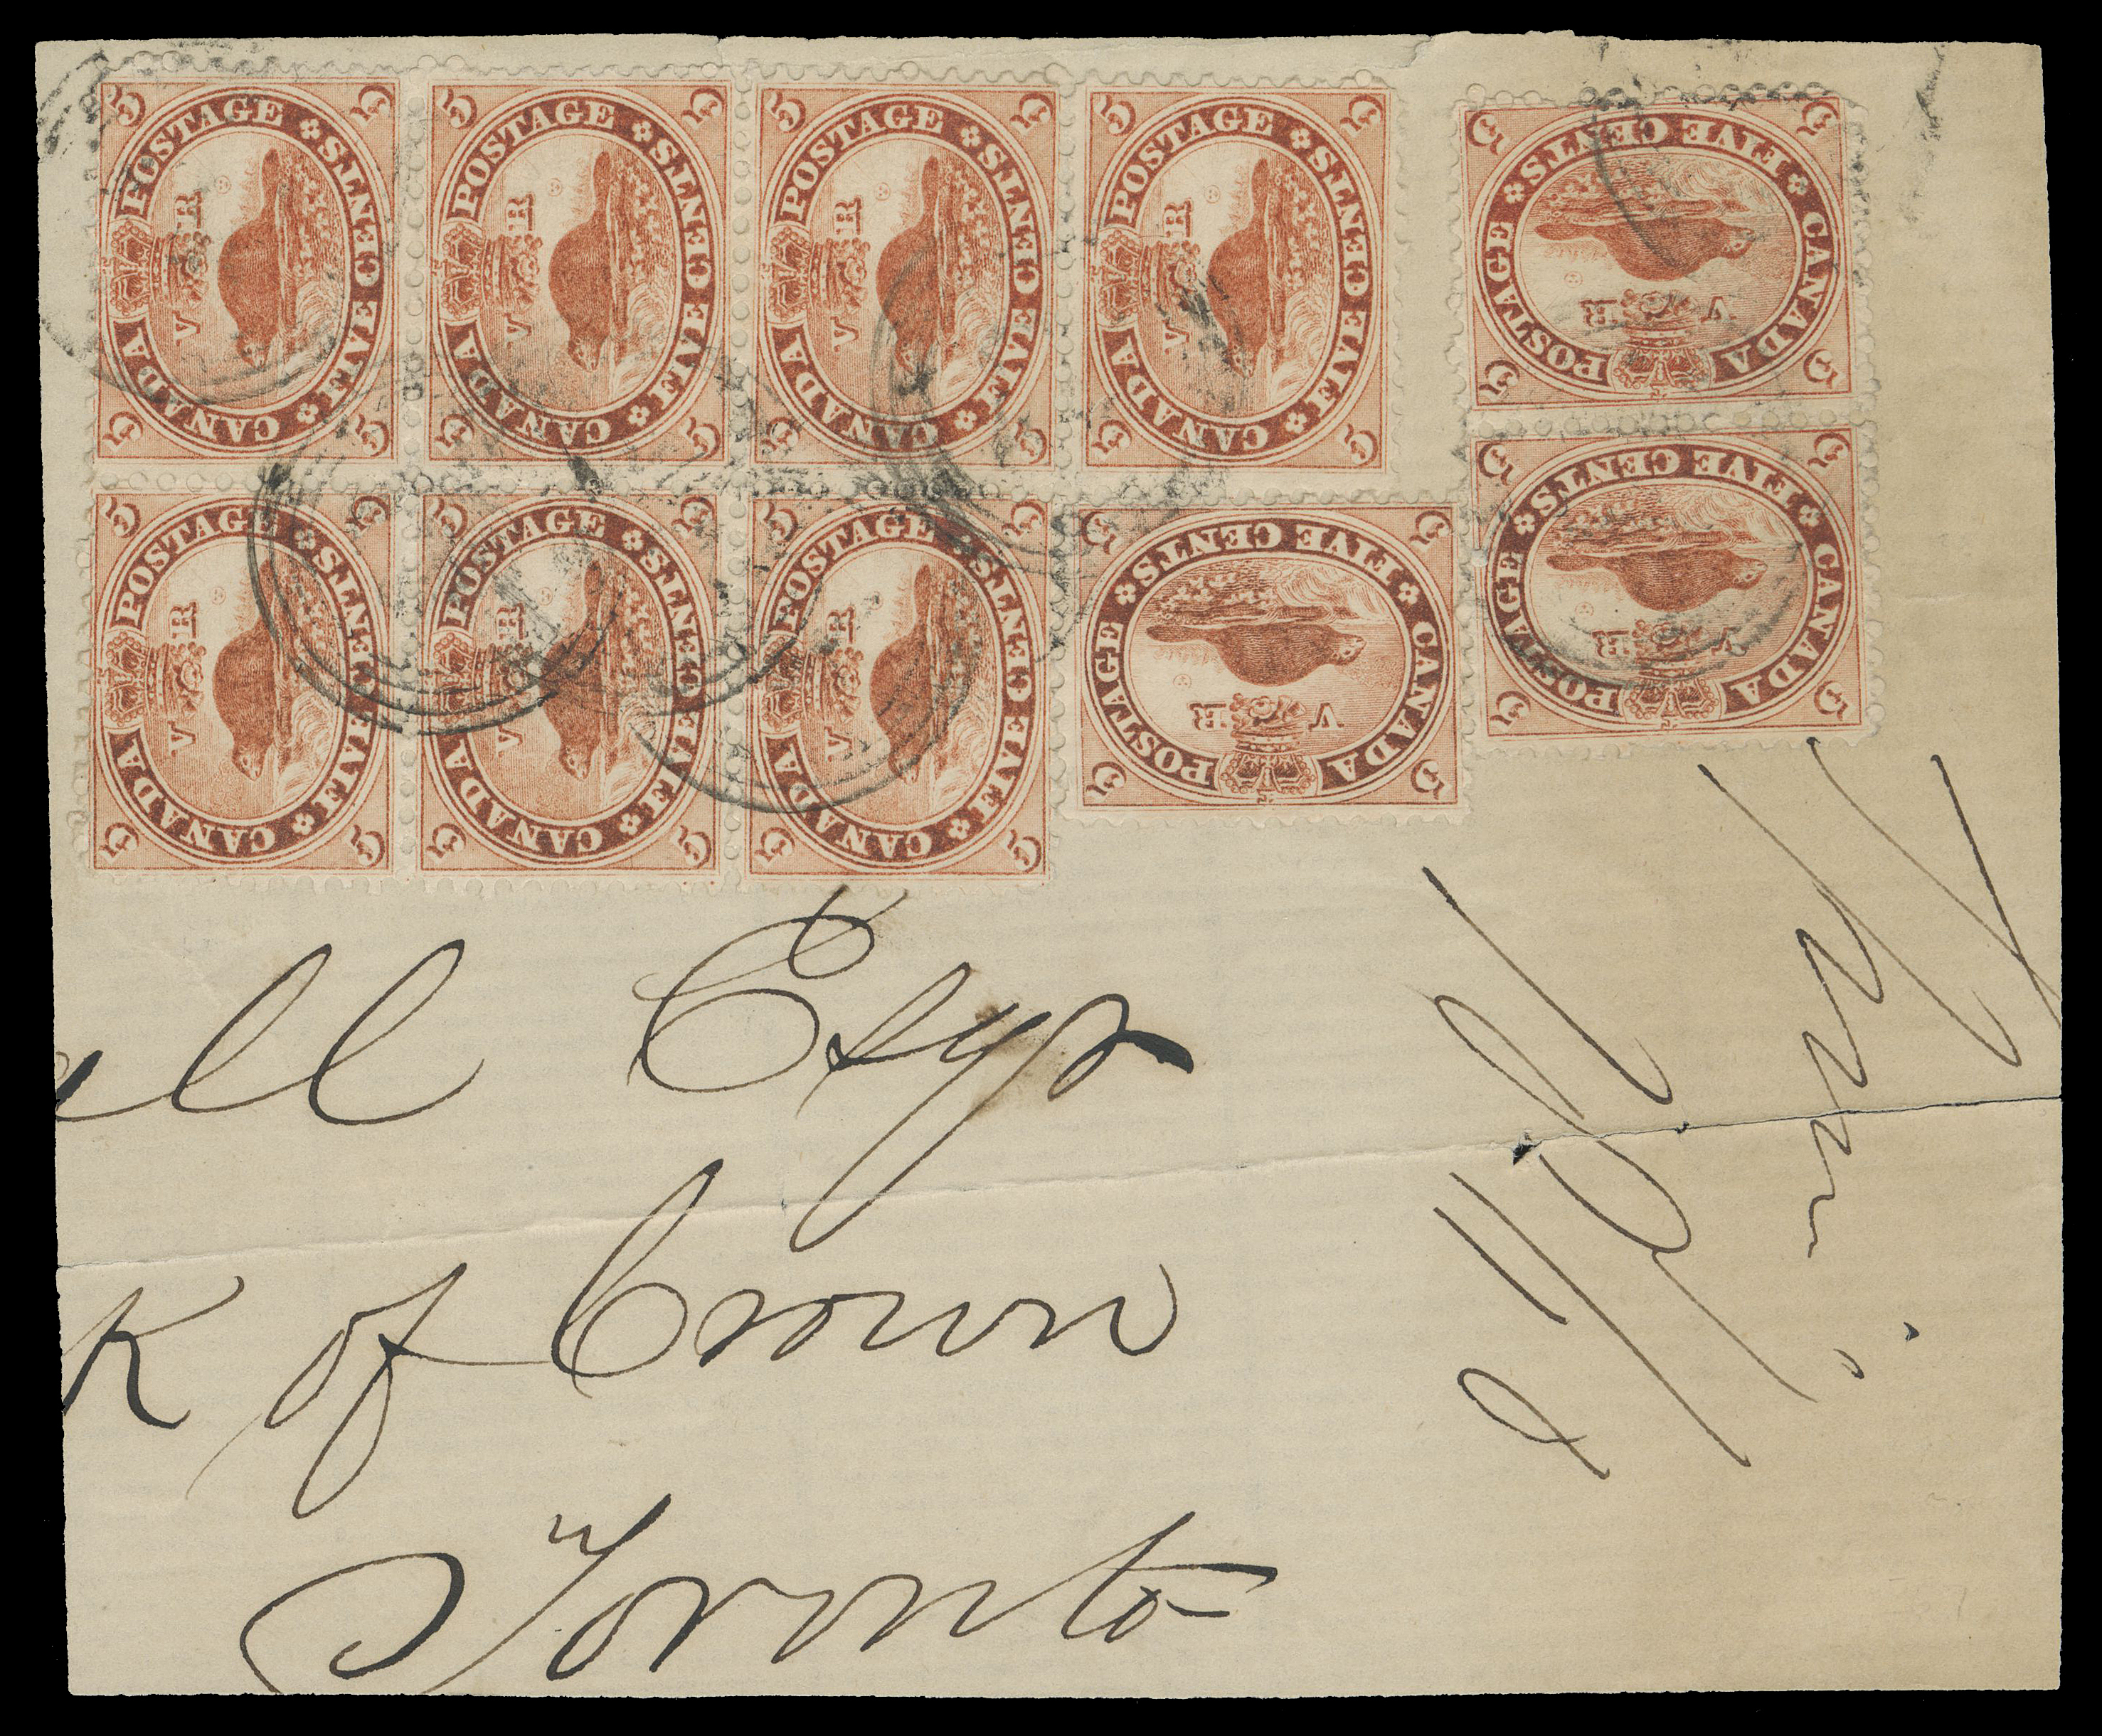 5 5 5 5
CANADA POSTAGE
V R
FIVE CENTS
5 5 5 5
CANADA POSTAGE
V R
FIVE CENTS
5 5 5 5
CANADA POSTAGE
V R
FIVE CENTS
5 5 5 5
CANADA POSTAGE
V R
FIVE CENTS
5 5 5 5
CANADA POSTAGE
V R
FIVE CENTS
5 5 5 5
CANADA POSTAGE
V R
FIVE CENTS
5 5 5 5
CANADA POSTAGE
V R
FIVE CENTS
5 5 5 5
CANADA POSTAGE
V R
FIVE CENTS
5 5 5 5
CANADA POSTAGE
V R
FIVE CENTS
5 5 5 5
CANADA POSTAGE
V R
FIVE CENTS
ell Esqr
k of Crown
Toronto